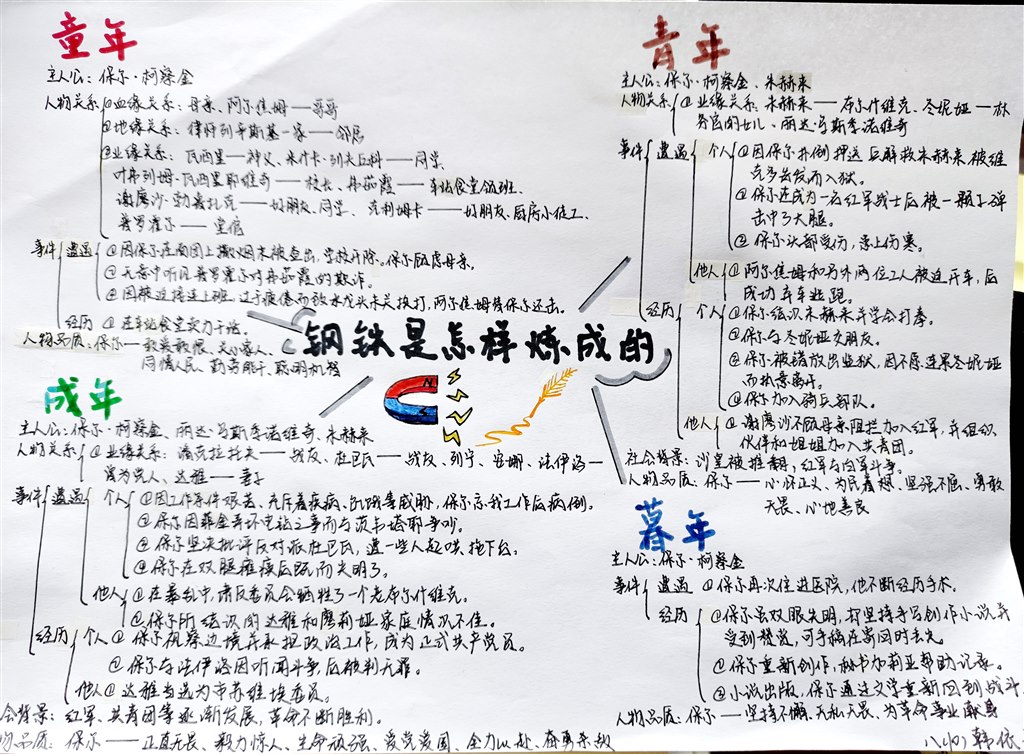 童年
主人公：保尔·柯察金
人物关系 @血缘关系：母亲、阿尔焦姆——哥哥
@地缘关系：律师列辛斯基一家——邻居
@业缘关系：瓦西里——神父、米什卡·列夫丘科——同学、
瓦西里耶维奇——校长、弗茹霞——车站食堂领班、
谢廖沙·勃鲁扎克——好朋友、同学、克利姆卡——好朋友、厨房小徒工、
普罗霍尔——堂倌
事件 遭遇 @因保尔在面团上撒烟末被查出，学校开除。保尔
@无意中听见普罗霍尔对弗茹霞的欺诈。
@因被迫接连上班，过于疲倦而放水龙头未关挨打，阿尔焦姆替保尔还击。
经历 @在车站食堂卖力干活。
人物品质：保尔——敢爱敢恨、关心家人、
同情人民、勤劳能干、聪明机智
钢铁是怎样炼成的
N
青年
主人公：保尔·柯察金、朱赫来
人物关系 @业缘关系：朱赫来——布尔什维克、冬妮娅——林
务官的女儿、丽达·乌斯季诺维奇
事件 遭遇 个人 @因保尔扑倒押送兵解救朱赫来，被维
克多告发而入狱。
@保尔在成为一名红军战士后被一颗子弹
击中了大腿。
@保尔头部受伤，患上伤寒。
他人 @阿尔焦姆和另外两位工人被迫开车，后
成功弃车逃跑。
经历 个人 @保尔结识朱赫来并学会打拳。
@保尔与冬妮娅交朋友。
@保尔被错放出监狱，因不愿连累冬妮娅
而执意离开。
@保尔加入骑兵部队。
他人 @谢廖沙不顾母亲阻拦加入红军，并组织
伙伴和姐姐加入共青团。
社会背景：沙皇被推翻，红军与白军斗争。
人物品质：保尔——心怀正义、为民着想、坚强不屈、勇敢
无畏、心地善良
成年
主人公：保尔·柯察金、丽达·乌斯季诺维奇、朱赫来
人物关系 @业缘关系：潘克拉托夫——战友、杜巴瓦——战友、列宁、安娜、法伊洛——
达雅——妻子
事件 遭遇 个人 @因工作条件艰苦、充斥着疾病、饥饿等威胁，保尔忘我工作后病倒。
@保尔因菲金弄坏电钻之事而与茨韦塔耶争吵。
@保尔坚决批评反对派杜巴瓦，遭一些人起哄拖下台。
@保尔在双腿瘫痪后既而失明了。
他人 @在暴乱中，肃反委员会牺牲了一个老布尔什维克。
@保尔所结识的达雅和廖莉娅家庭情况不佳。
经历 个人 @保尔视察边境并承担政治工作，成为正式共产党员。
@保尔与法伊洛因听闻斗争，后被判无罪。
他人 @达雅当选为市苏维埃委员。
会背景：红军、共青团等逐渐发展，革命不断胜利。
物品质：保尔——正直无畏、毅力惊人、生命顽强、爱党爱国、全力以赴、奋勇杀敌
暮年
主人公：保尔·柯察金
事件 遭遇 @保尔再次住进医院，他不断经历手术。
经历 @保尔虽双眼失明，却坚持手写创作小说并
受到赞赏，可手稿在寄回时丢失。
@保尔重新创作，秘书加莉亚帮助记录。
@小说出版，保尔通过文学重新回到战斗。
人物品质：保尔——坚持不懈、无私无畏、为革命事业献身
八(10)韩依